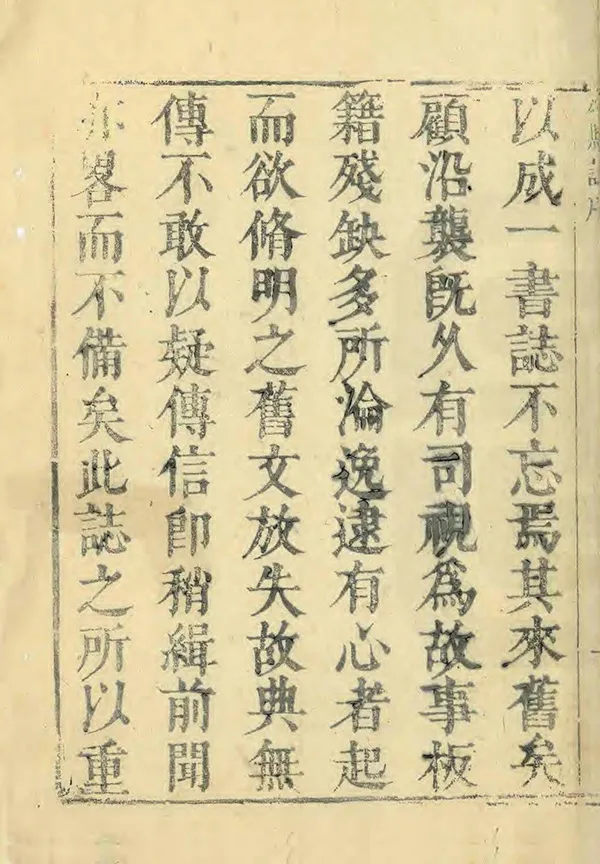 以成一書誌不忘焉其來舊矣
顧沿襲旣乆有司視爲故事板
籍殘缺多所淪逸逮有心者起
而欲脩明之舊文放失故典無
傳不敢以疑傳信卽稍緝前聞
亦畧而不備矣此誌之所以重